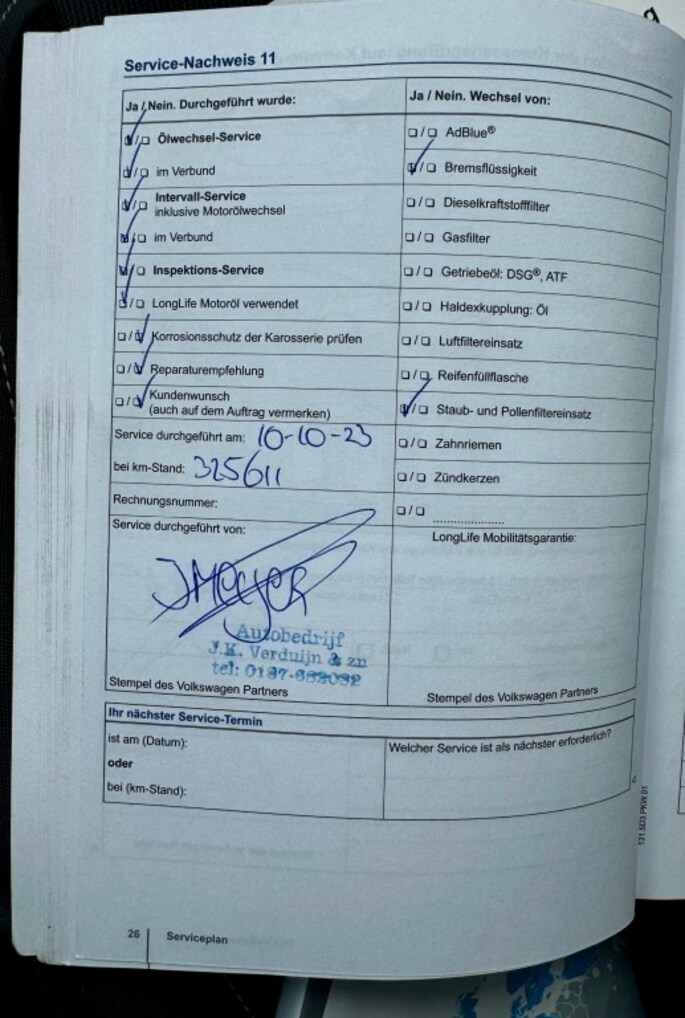 Service-Nachweis 11
Ja / Nein. Durchgeführt wurde:
Ölwechsel-Service
im Verbund
Intervall-Service
inklusive Motorölwechsel
im Verbund
Inspektions-Service
LongLife Motoröl verwendet
Korrosionsschutz der Karosserie prüfen
Reparaturempfehlung
Kundenwunsch
(auch auf dem Auftrag vermerken)
Service durchgeführt am: 10-10-23
bei km-Stand: 325611
Rechnungsnummer:
Service durchgeführt von:
JMeyer
Autobedrijf
J.K. Verduijn & zn
tel: 0187-
Stempel des Volkswagen Partners
Ja / Nein. Wechsel von:
AdBlue®
Bremsflüssigkeit
Dieselkraftstofffilter
Gasfilter
Getriebeöl: DSG®, ATF
Haldexkupplung: Öl
Luftfiltereinsatz
Reifenfüllflasche
Staub- und Pollenfiltereinsatz
Zahnriemen
Zündkerzen
LongLife Mobilitätsgarantie:
Stempel des Volkswagen Partners
Ihr nächster Service-Termin
ist am (Datum):
oder
bei (km-Stand):
Welcher Service ist als nächster erforderlich?
131.5D3.PKW.01
26 Serviceplan